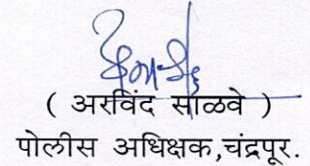 ( अरविंद साळवे )
पोलीस अधिक्षक,चंद्रपूर.